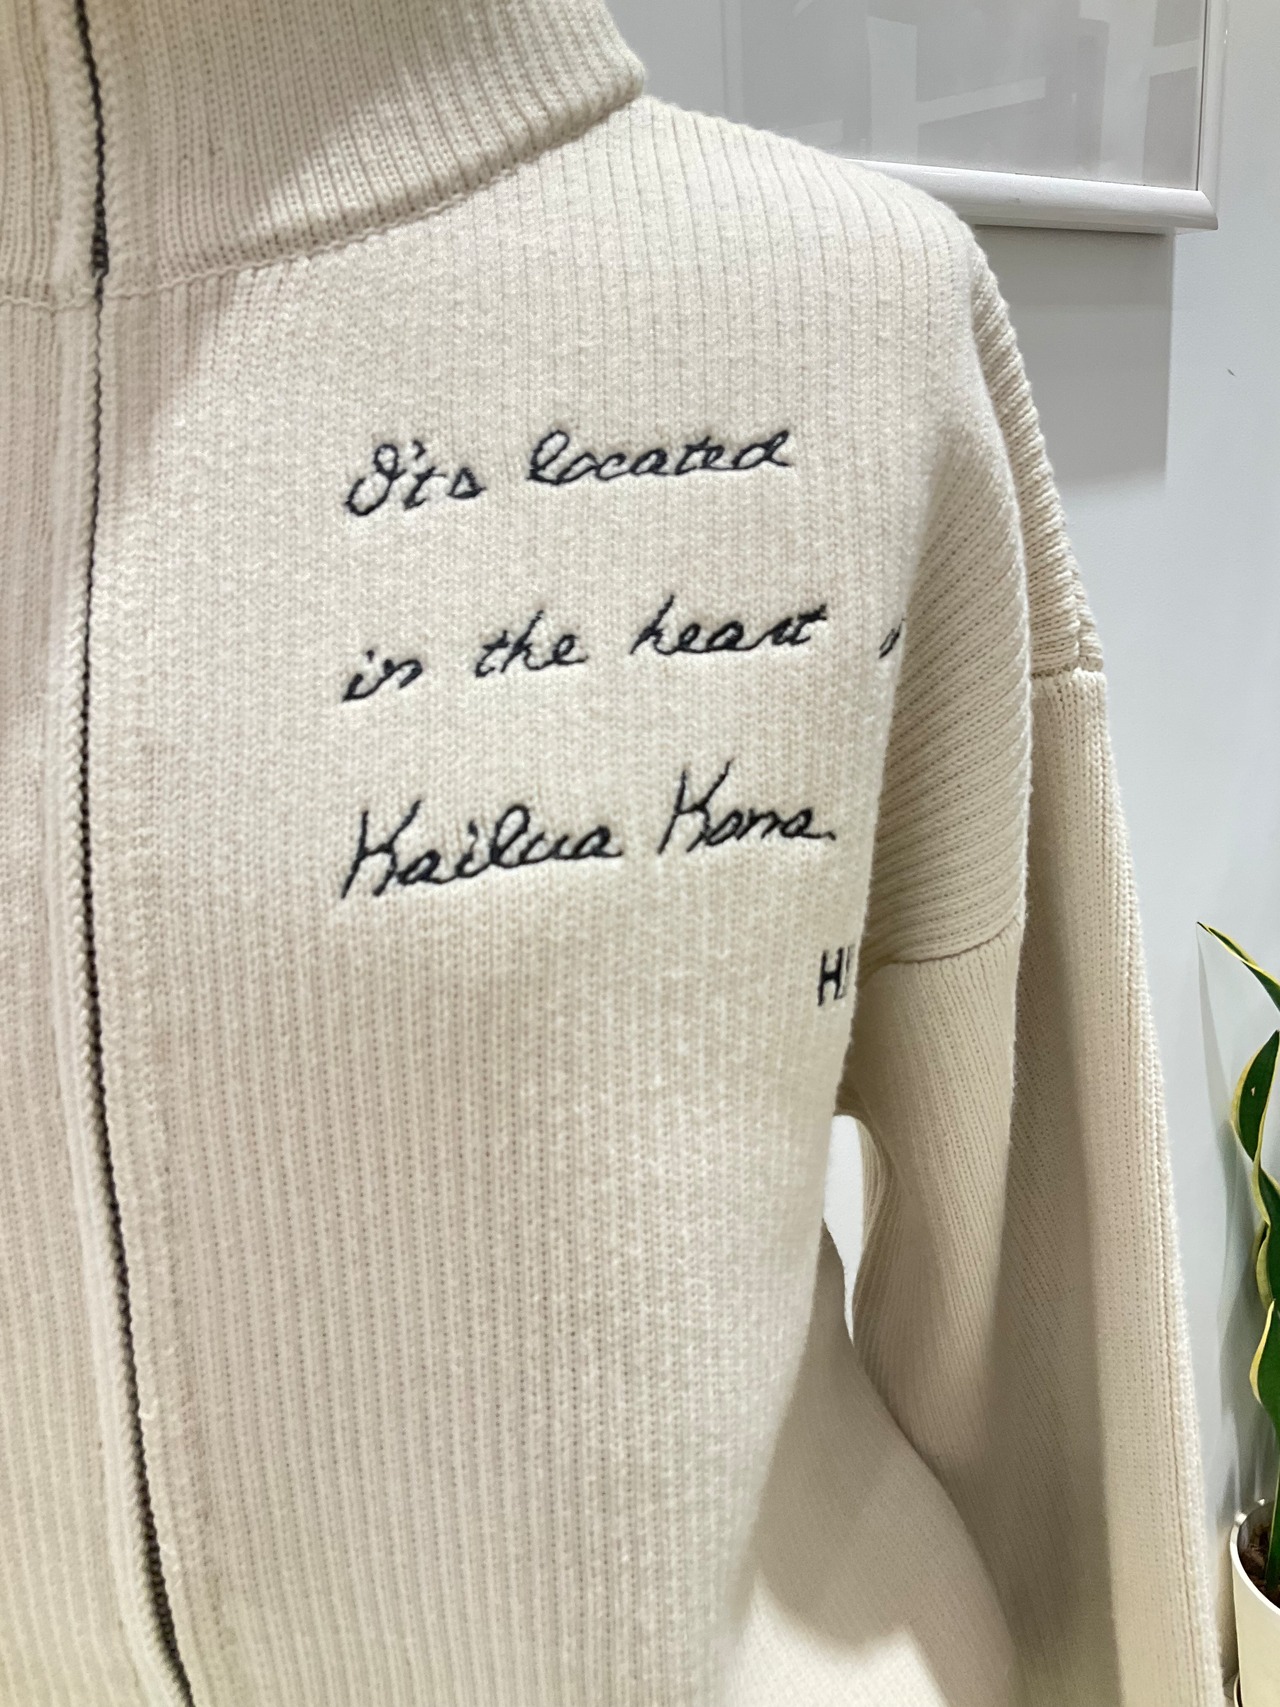 It's located
in the heart
Kailua Kona.